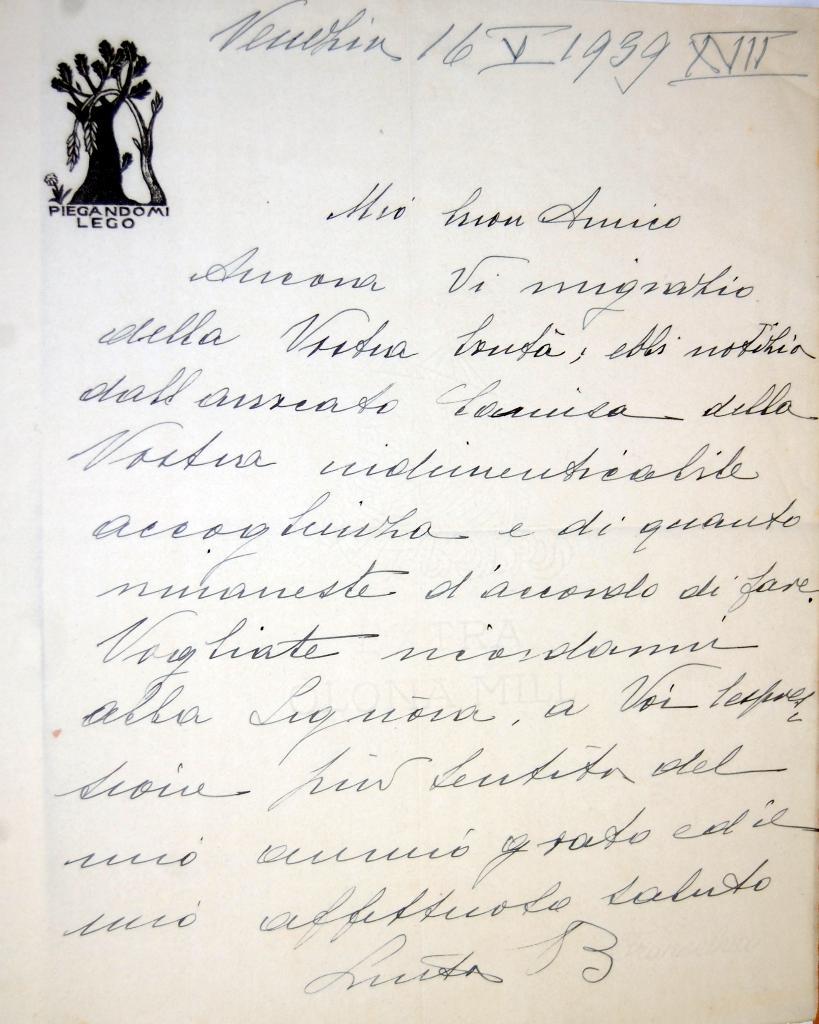 Venezia 16 V 1939 XVII
PIEGANDOMI
LEGO
Mio buon Amico
Ancora Vi ringrazio
della Vostra bontà; ebbi notizia
dall'avvocato della
Vostra indimenticabile
accoglienza e di quanto
rimaneste d'accordo di fare.
Vogliate ricordarmi
alla Signora, a Voi l'espres-
sione più sentita del
mio animo grato ed il
mio affettuoso saluto
B
EXTRA
OLONA MILL